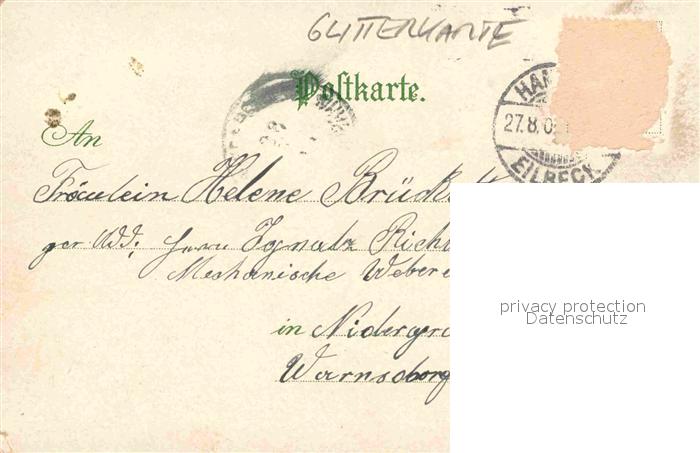 GLITTERKARTE
Postkarte.
HAM
27.8.0
EILBECK
An
Fräulein Helene Brück
per Add: Herrn Ignatz Rich
Mechanische Webere
in Nidergr
Warnsdorf
privacy protection
Datenschutz